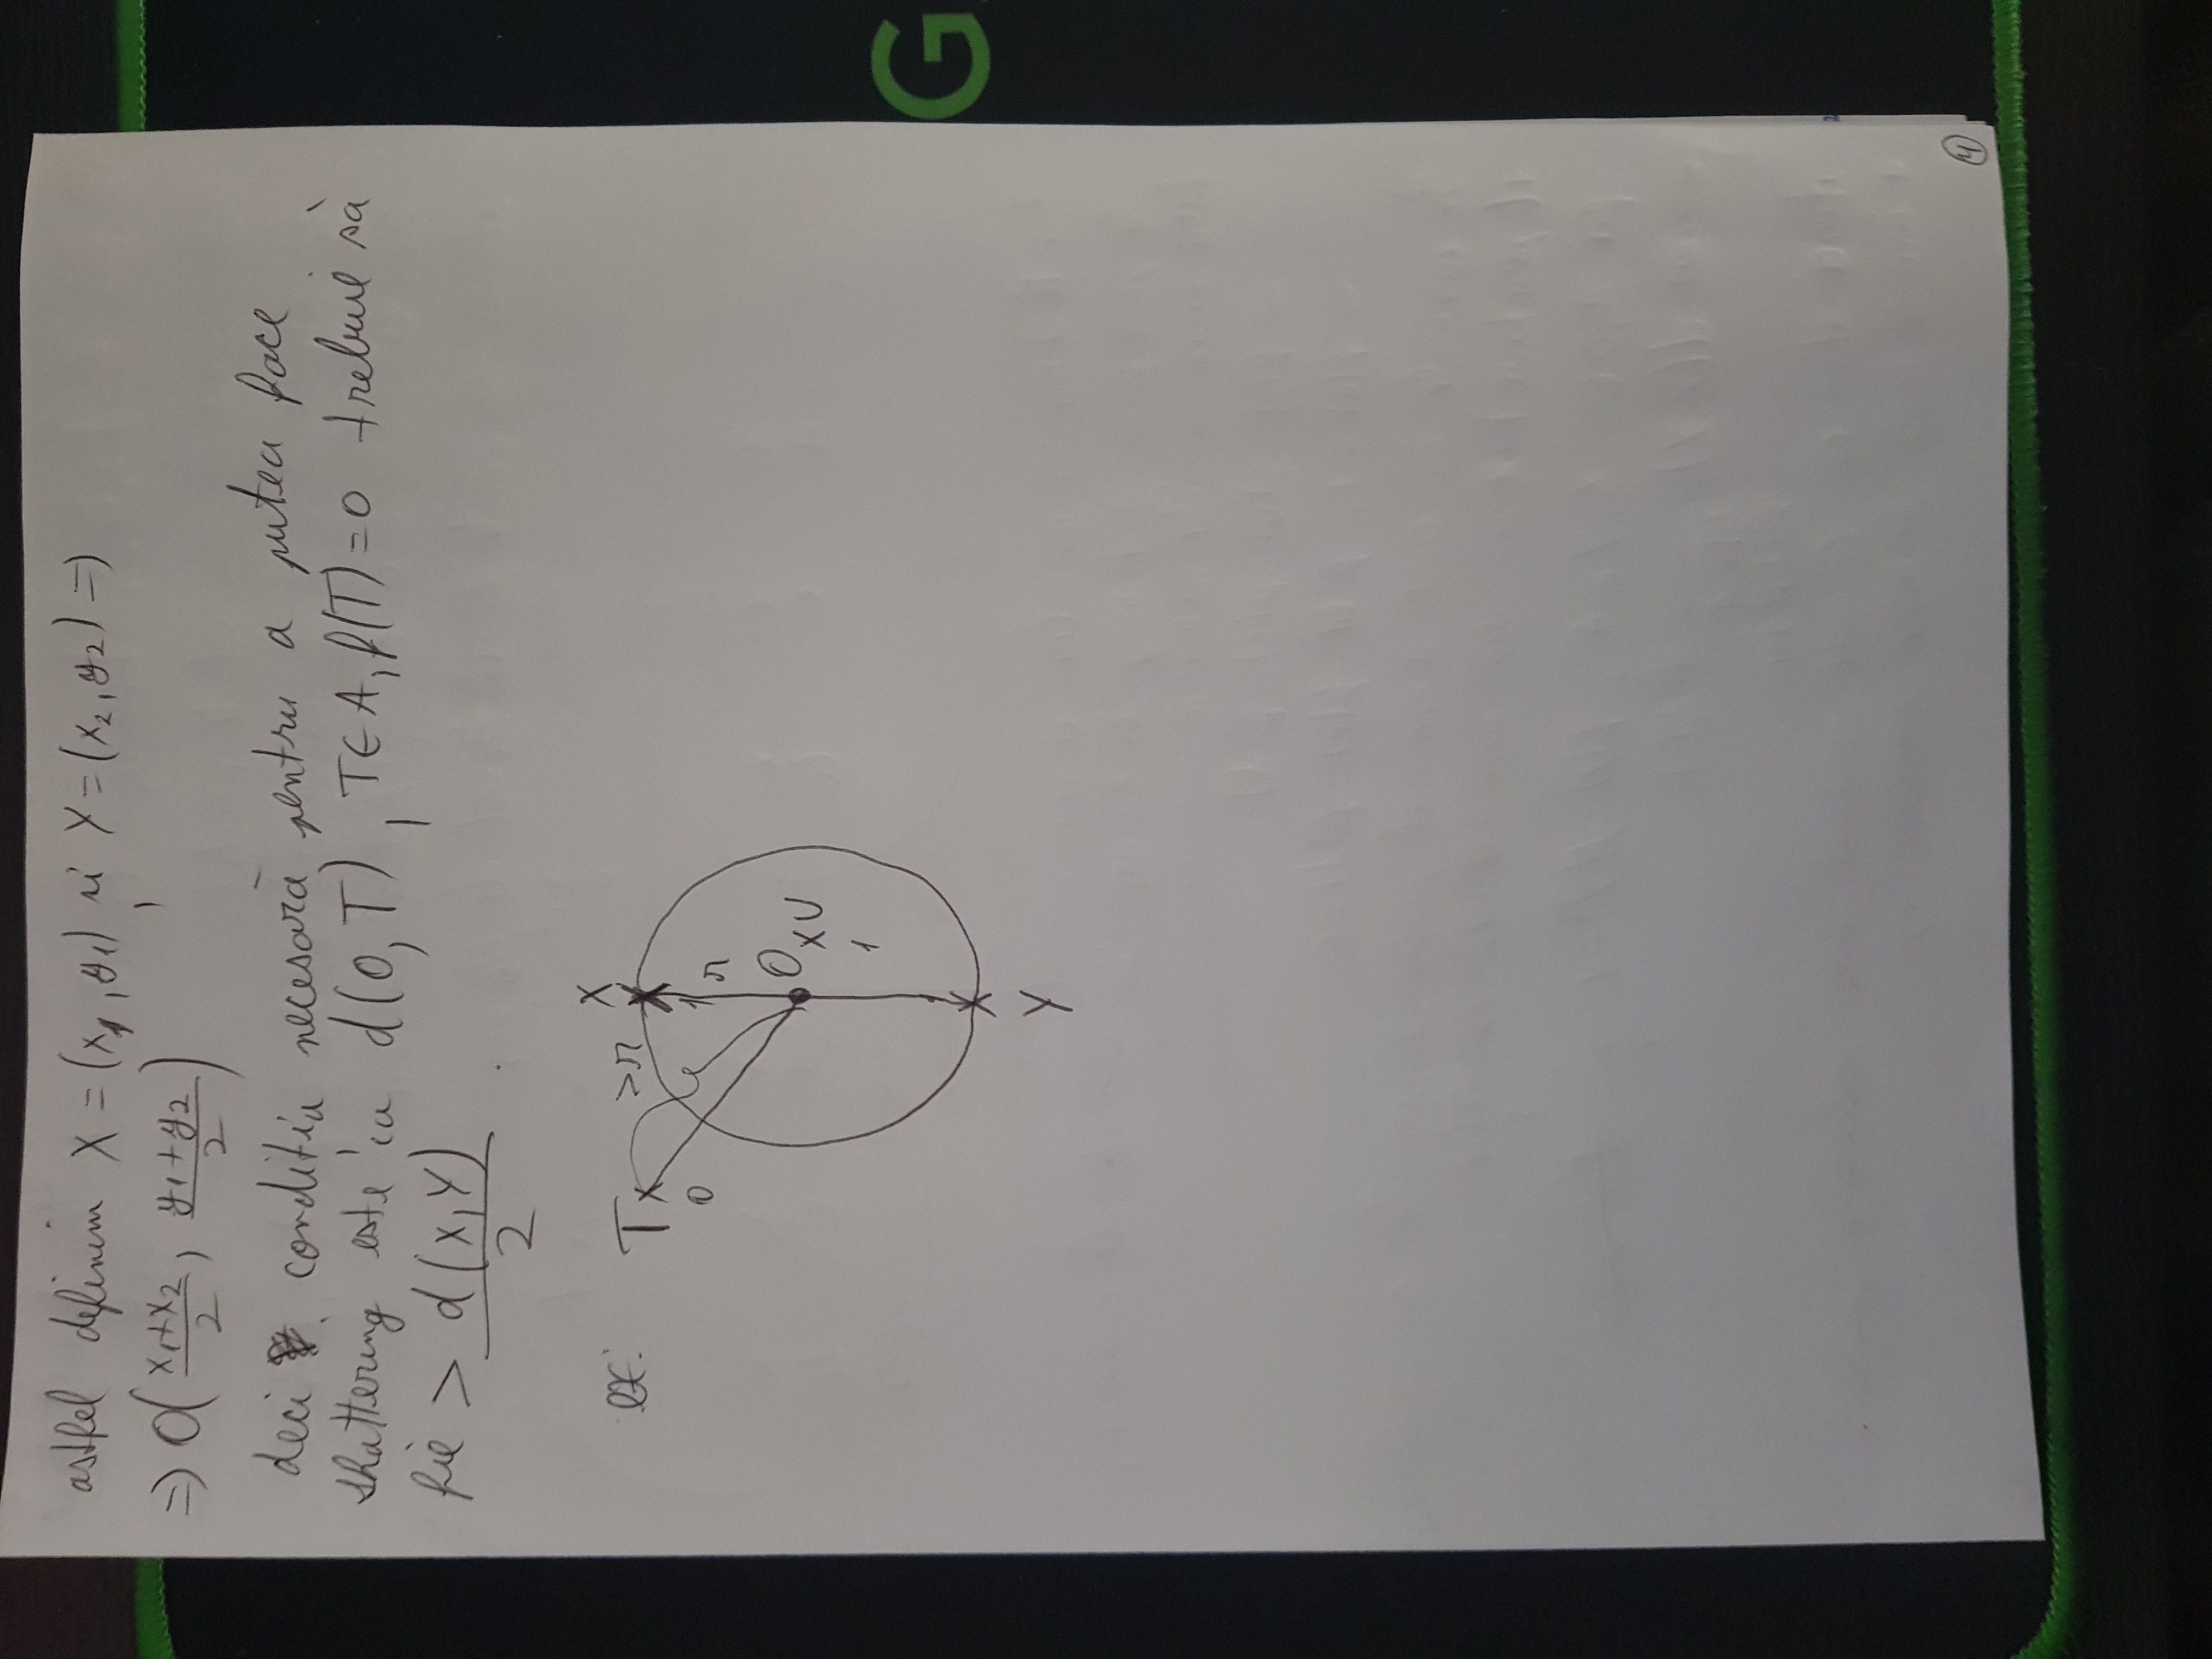 astfel definim X = (x₁, y₁) și Y = (x₂, y₂) =>
=> O((x₁+x₂)/2, (y₁+y₂)/2)
deci conditia necesară pentru a putea face
shattering este ca d(O,T), T∈A, f(T)=0 trebuie să
fie > d(X,Y)/2
ex:
X
T x >r
0
1 r
O
x U
1
Y
G
4